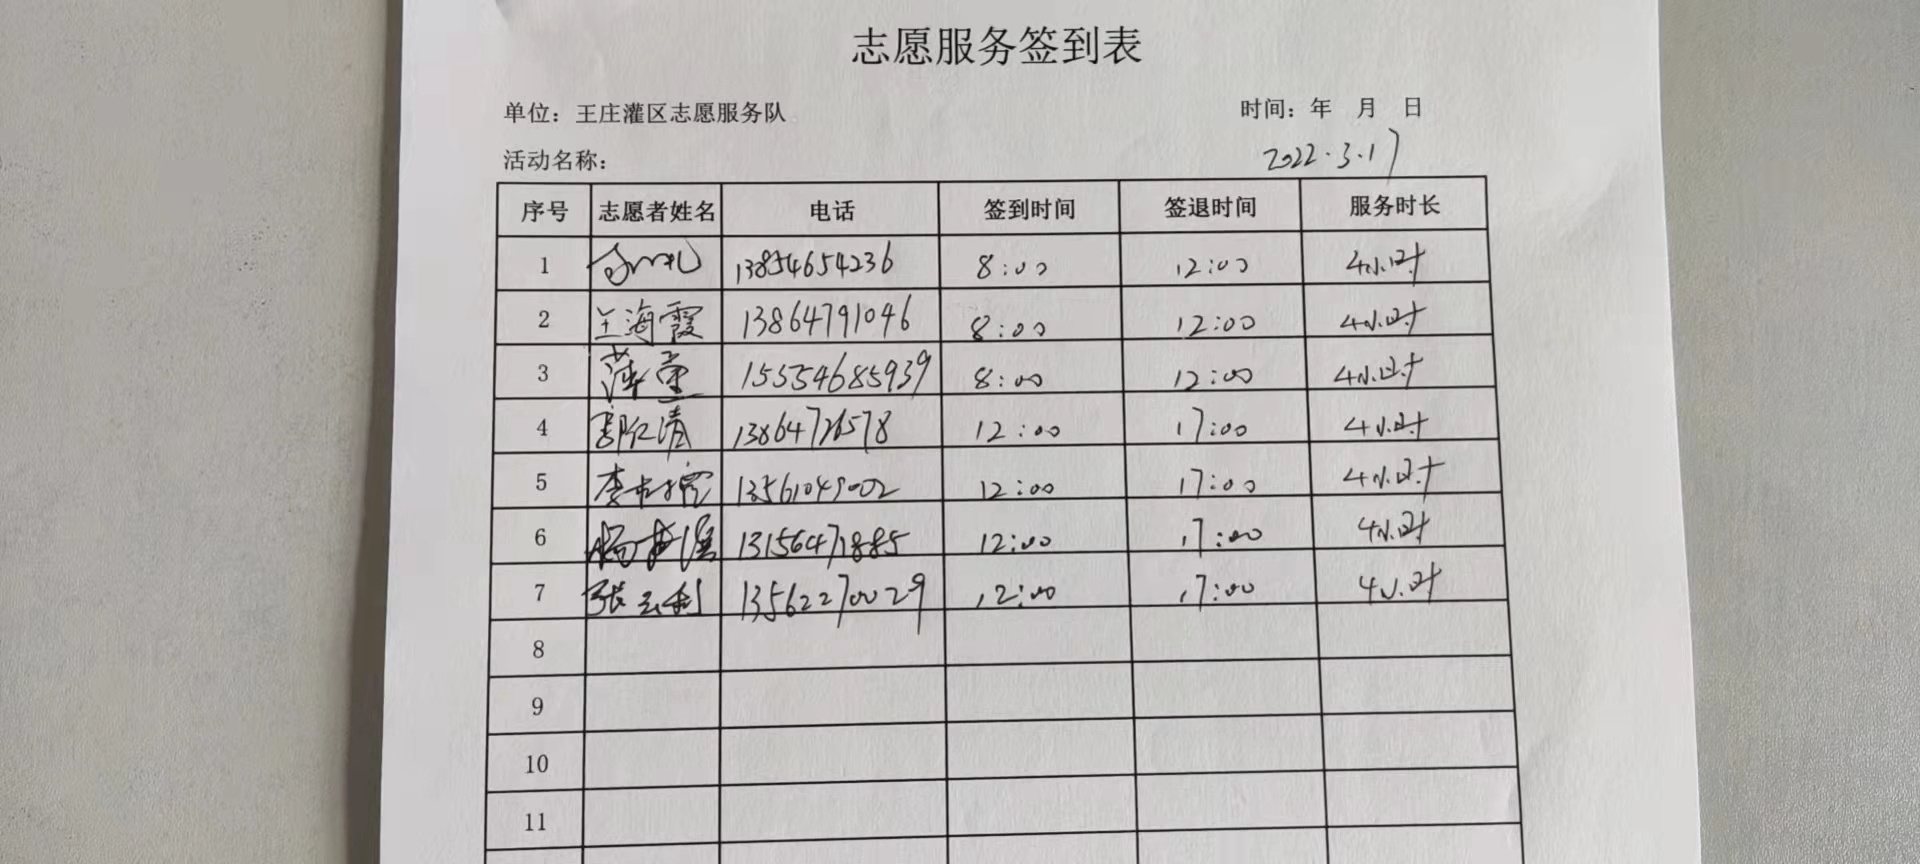 志愿服务签到表
单位：王庄灌区志愿服务队 时间：年 月 日
活动名称： 2022.3.17
序号 志愿者姓名 电话 签到时间 签退时间 服务时长
1 13854654236 8:00 12:00 4小时
2 王海霞 13864791046 8:00 12:00 4小时
3 15554685939 8:00 12:00 4小时
4 13864726578 12:00 17:00 4小时
5 13561049002 12:00 17:00 4小时
6 13156471885 12:00 17:00 4小时
7 张云利 13562270029 12:00 17:00 4小时
8
9
10
11